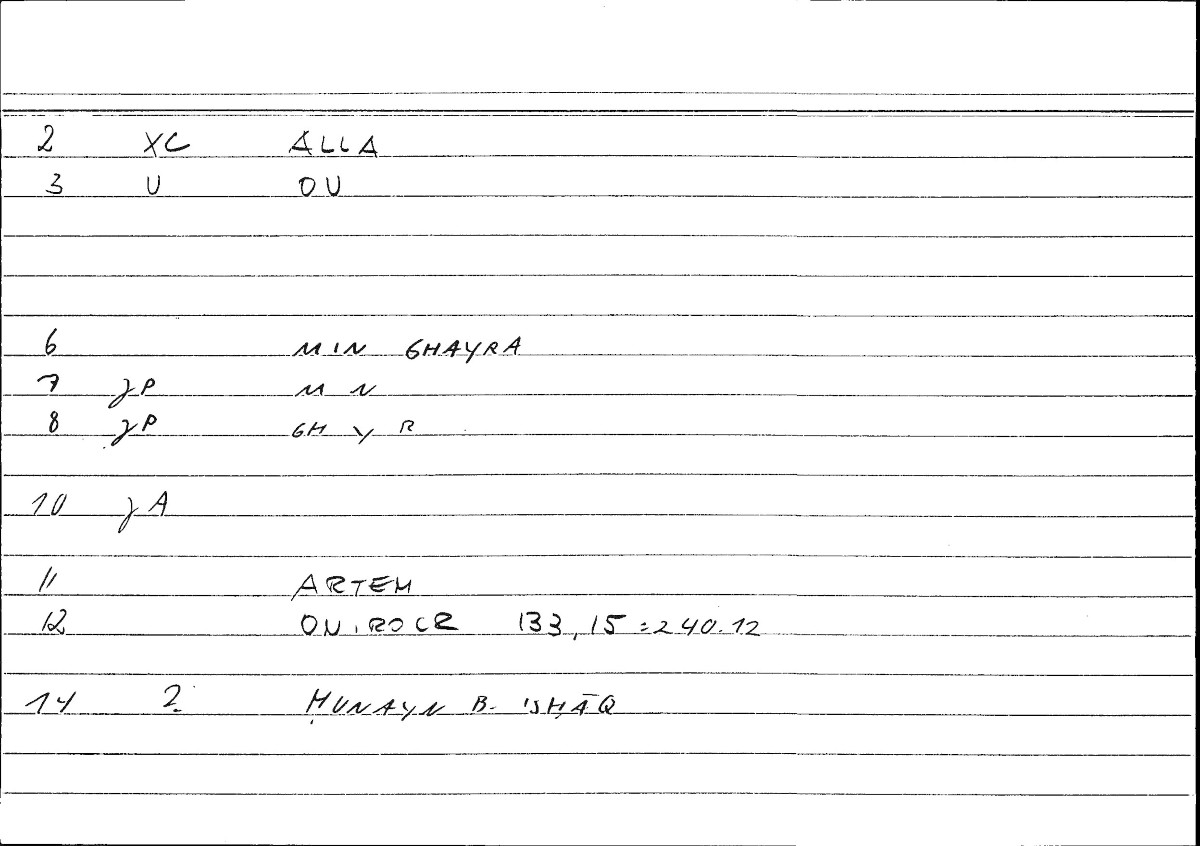 2 XC ALLA
3 U OU
6 MIN GHAYRA
7 γP M N
8 γP GH Y R
10 γA
11 ARTEM
12 ONIROCR 133,15=240.12
14 2 ḤUNAYN B. ISḤĀQ